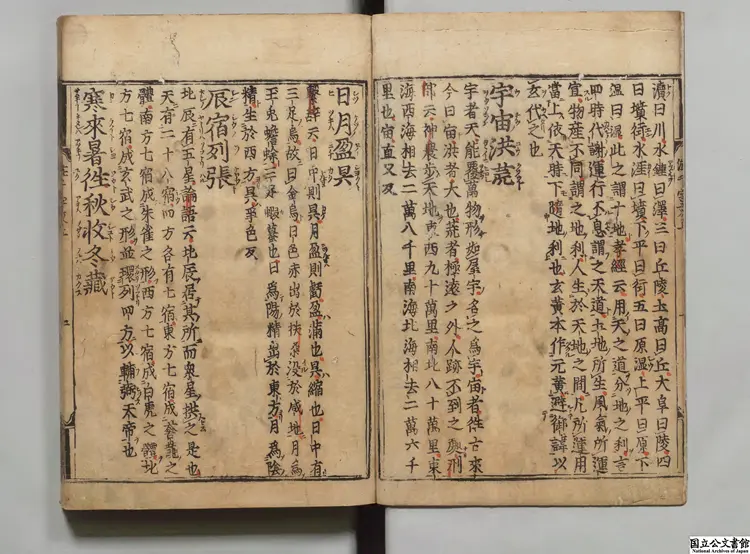 瀆曰川水鍾曰澤三曰丘陵土高曰丘大阜曰陵四
曰墳衍水涯曰墳下平曰衍五曰原濕上平曰原下
濕曰濕此之謂十地孝經云用天之道分地之利言
四時代謝運行不息謂之天道土地所生風氣所運
宜物產不同謂之地利人生於天地之間凡所運用
當上依天時下隨地利也玄黃本作元黃避御諱以
玄代之也
宇宙洪荒
宇者天能覆萬物形如屋宇名之為宇宙者徃古來
今曰宙洪者大也荒者極遠之外人跡不到之處
天神農步天地東西九十萬里南北八十萬里東
海西海相去二萬八千里南海北海相去二萬六千
里也宙直又反
日月盈昃
繫辞云日中則昃月盈則虧盈滿也昃縮也日中有
三足烏故曰金烏日色赤出於扶桒沒於咸地月為
玉兎蟾蜍三足蝦蟇也日為陽精出於東方月為陰
精生於西方昃爭色反
辰宿列張
北辰有五星論語云北辰居其所而衆星拱之是也
天有二十八宿四方各有七宿東方七宿成蒼龍之
體南方七宿成朱雀之形西方七宿成白虎之體北
方七宿成玄武之形並環列四方以輔弼天帝也
寒來暑徃秋收冬藏
国立公文書館
National Archives of Japan